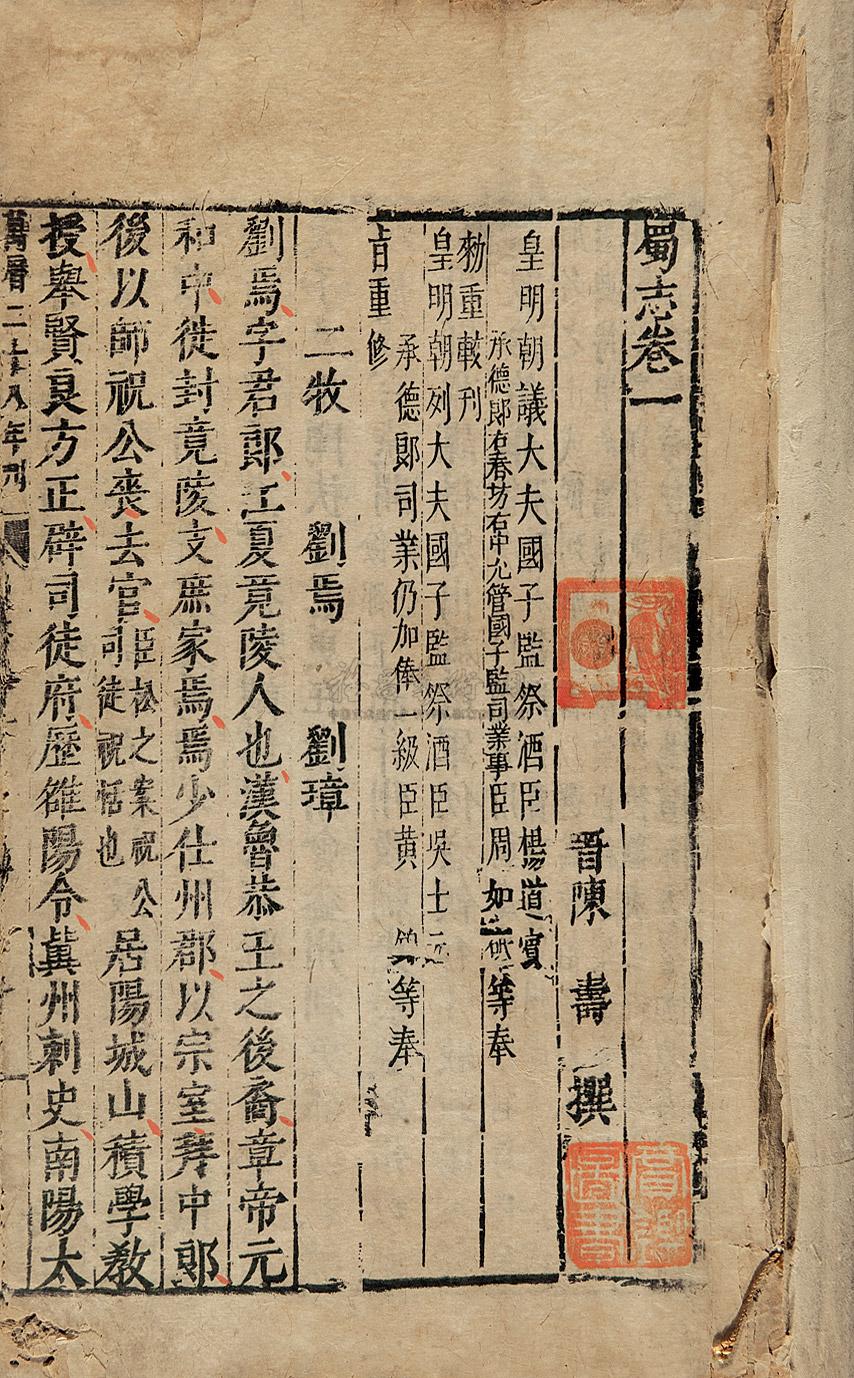 蜀志卷一
晉陳壽撰
皇明朝議大夫國子監祭酒臣楊道賓
承德郎右春坊右中允管國子監司業事臣周如砥等奉
勑重較刊
皇明朝列大夫國子監祭酒臣吳士元
承德郎司業仍加俸一級臣黃錦等奉
旨重修
二牧 劉焉 劉璋
劉焉字君郎江夏竟陵人也漢魯恭王之後裔章帝元
和中徙封竟陵支庶家焉焉少仕州郡以宗室拜中郎
後以師祝公喪去官臣松之案祝公司徒祝恬也居陽城山積學教
授舉賢良方正辟司徒府歷雒陽令冀州刺史南陽太
萬曆二十八年刊